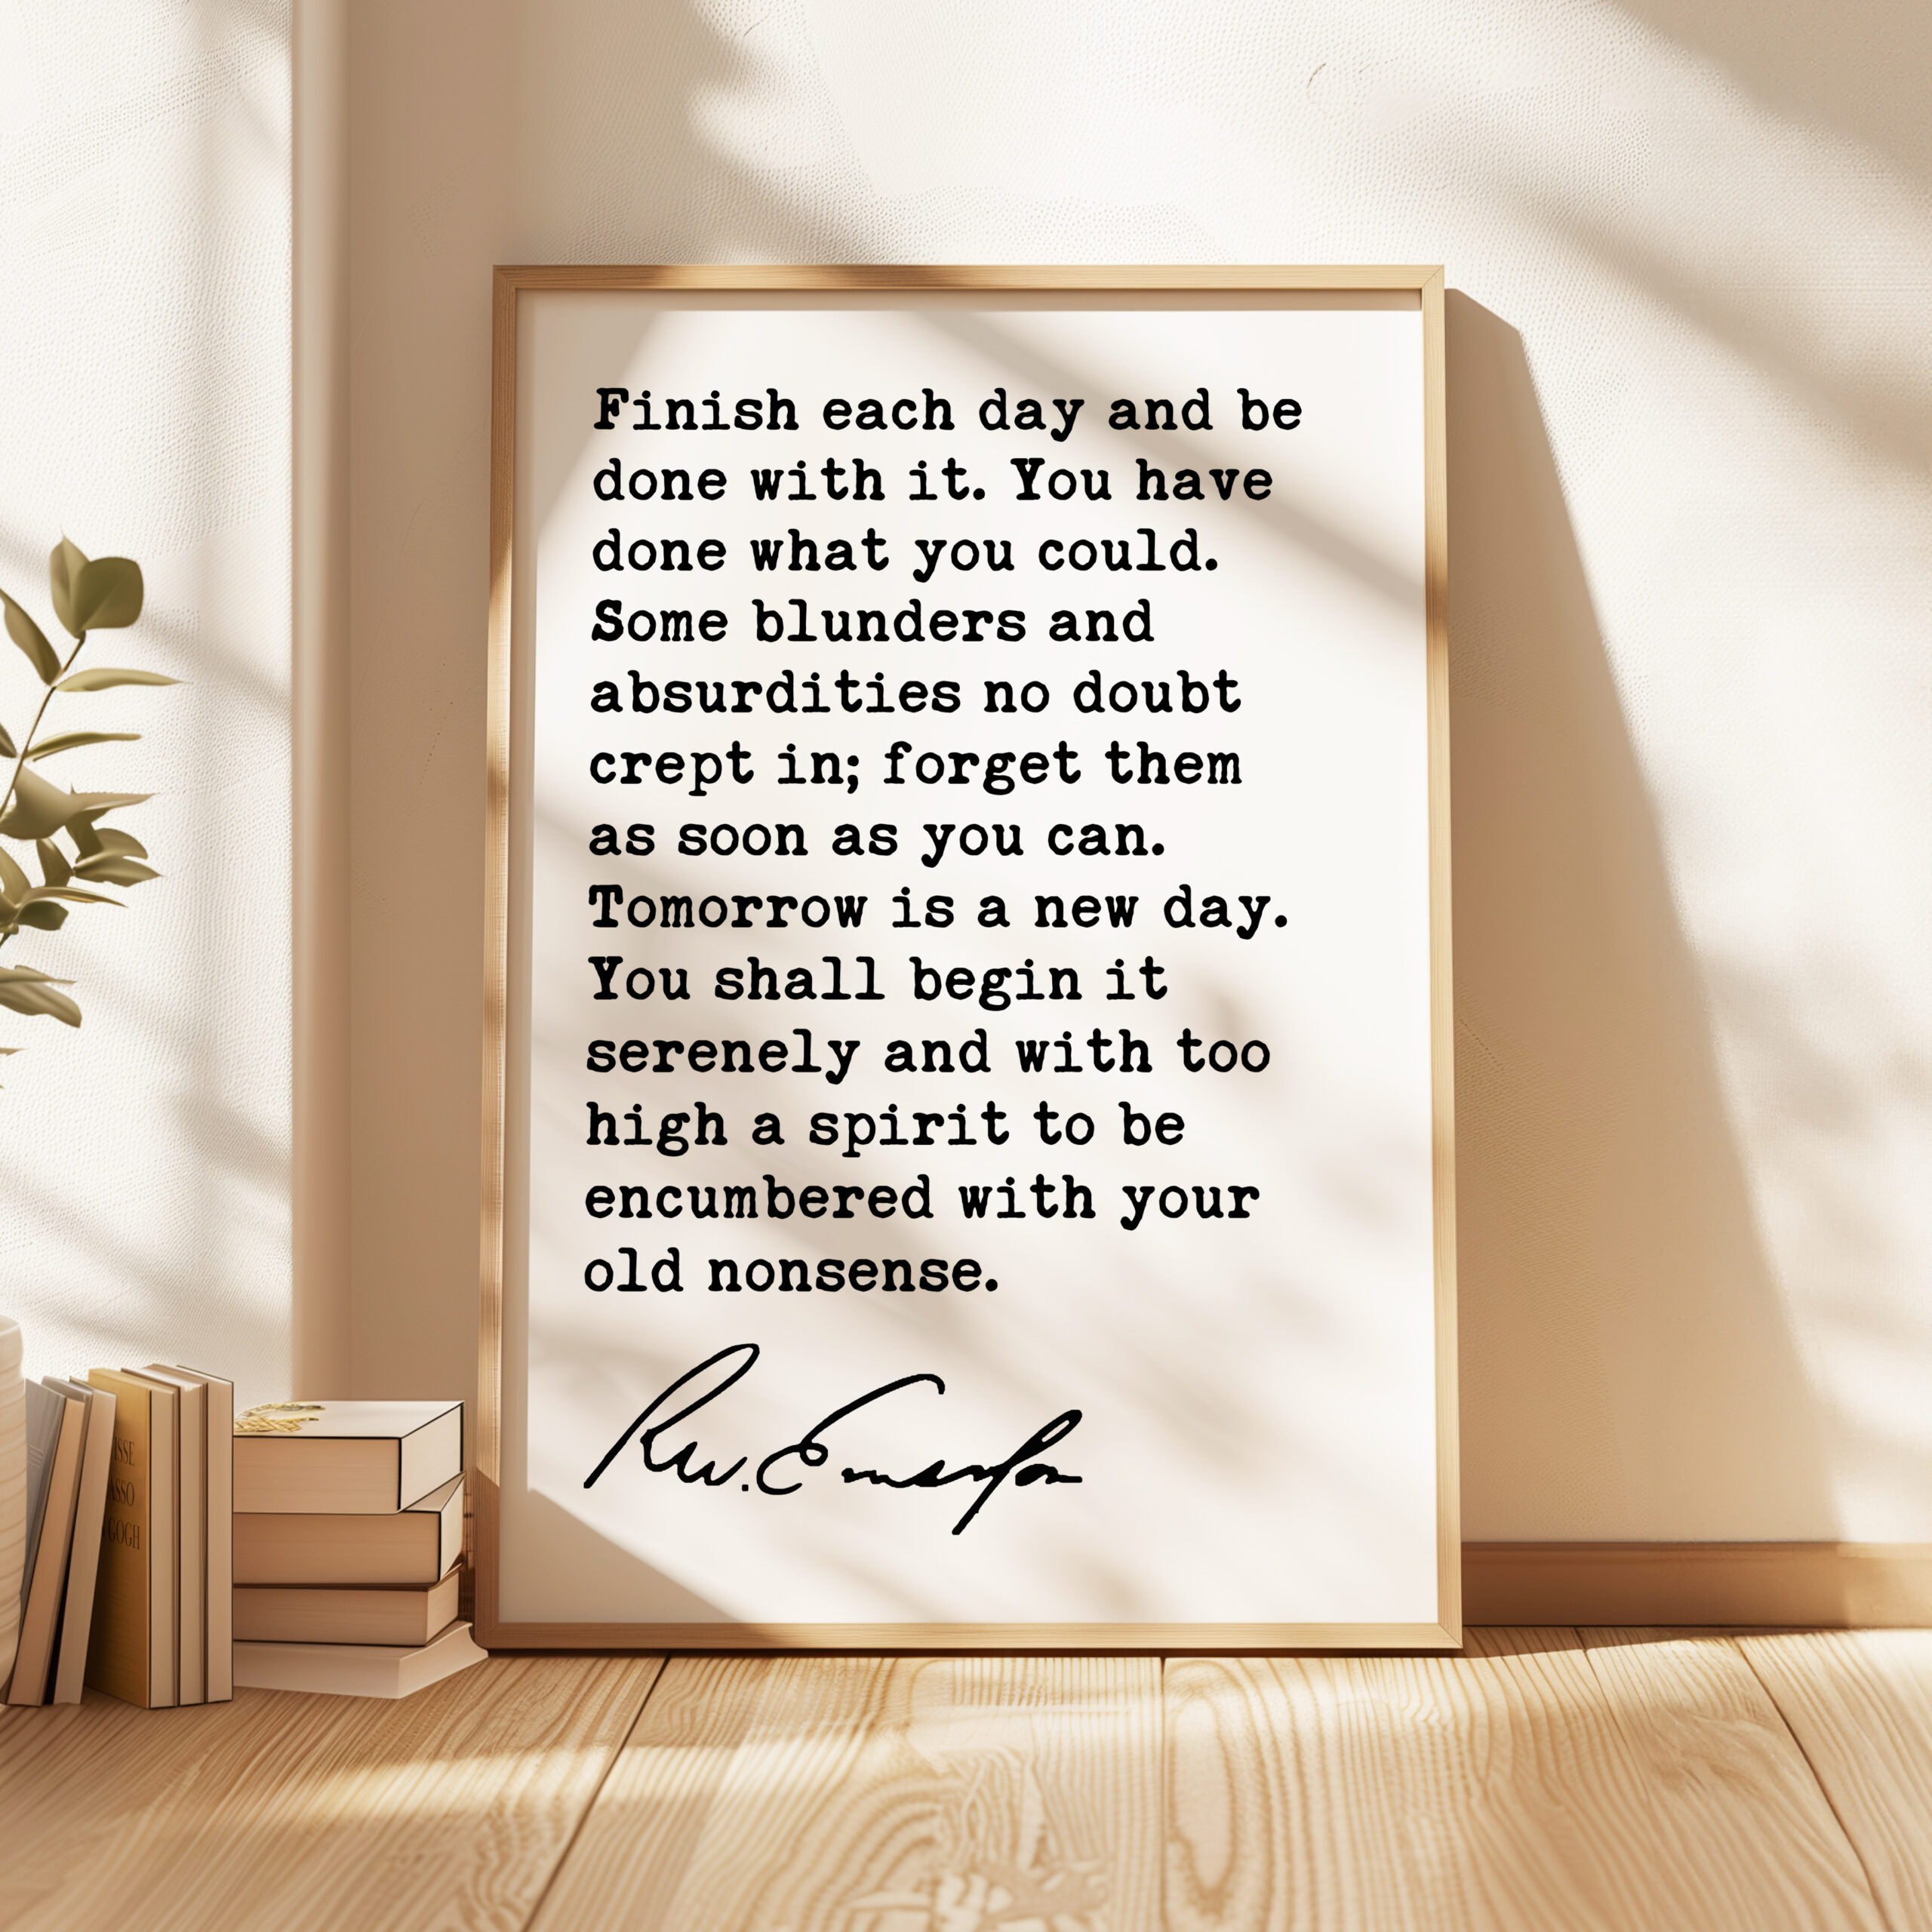 Finish each day and be
done with it. You have
done what you could.
Some blunders and
absurdities no doubt
crept in; forget them
as soon as you can.
Tomorrow is a new day.
You shall begin it
serenely and with too
high a spirit to be
encumbered with your
old nonsense.
RW. Emerson
ISSE
ASSO
GOGH